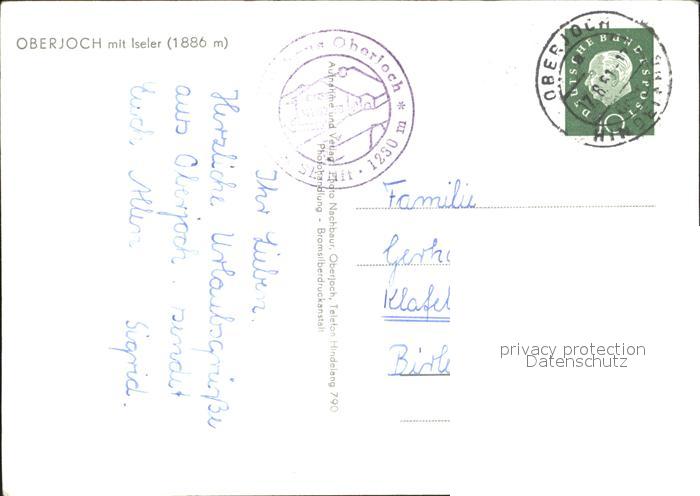 OBERJOCH mit Iseler (1886 m)
Ihr Lieben.
Herzliche Urlaubsgrüße
aus Oberjoch. sendet
Euch Allen
Sigrid.
Oberjoch * 1230 m • Skilift
Aufnahme und Verlag: Photo Nachbaur, Oberjoch, Telefon Hindelang 790
Photohandlung - Bromsilberdruckanstalt
DEUTSCHE BUNDESPOST
10
OBERJOCH
Familie
Gerh
Klafe
Birk
privacy protection
Datenschutz